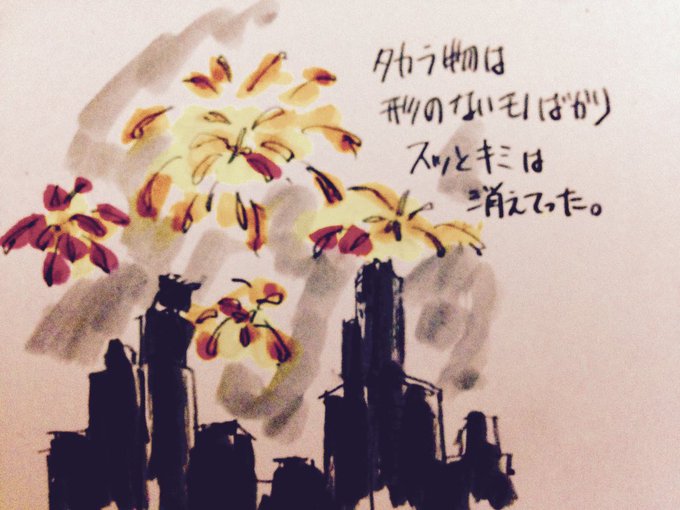 タカラ物は
形のないモノばかり
スッとキミは
消えてった。